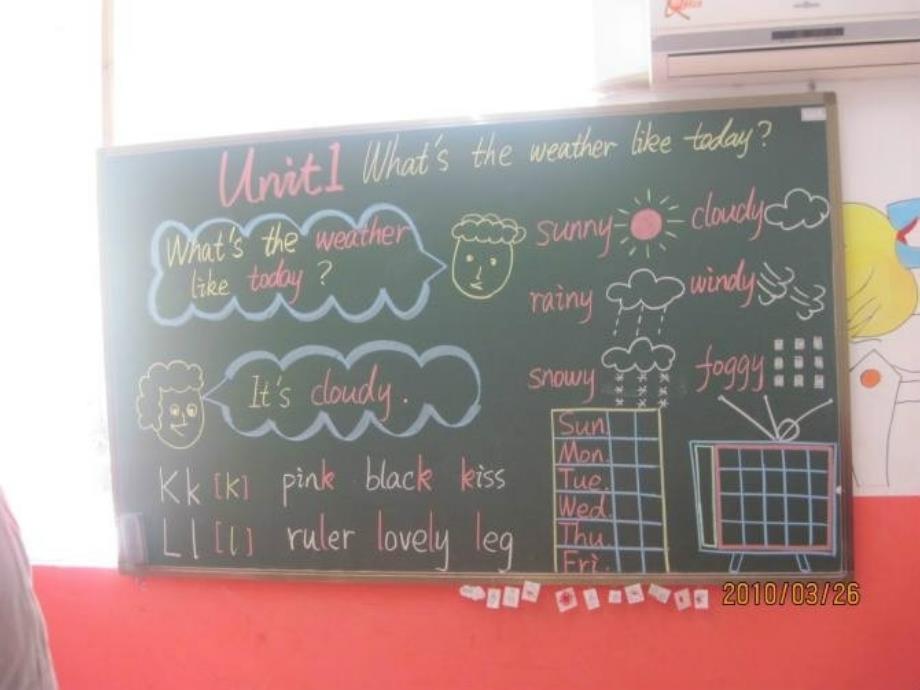 Unit1 What's the weather like today?
What's the weather
like today?
sunny
cloudy
rainy
windy
snowy
foggy
It's cloudy.
Kk [k] pink black kiss
Ll [l] ruler lovely leg
Sun.
Mon.
Tue.
Wed.
Thu.
Fri.
2010/03/26